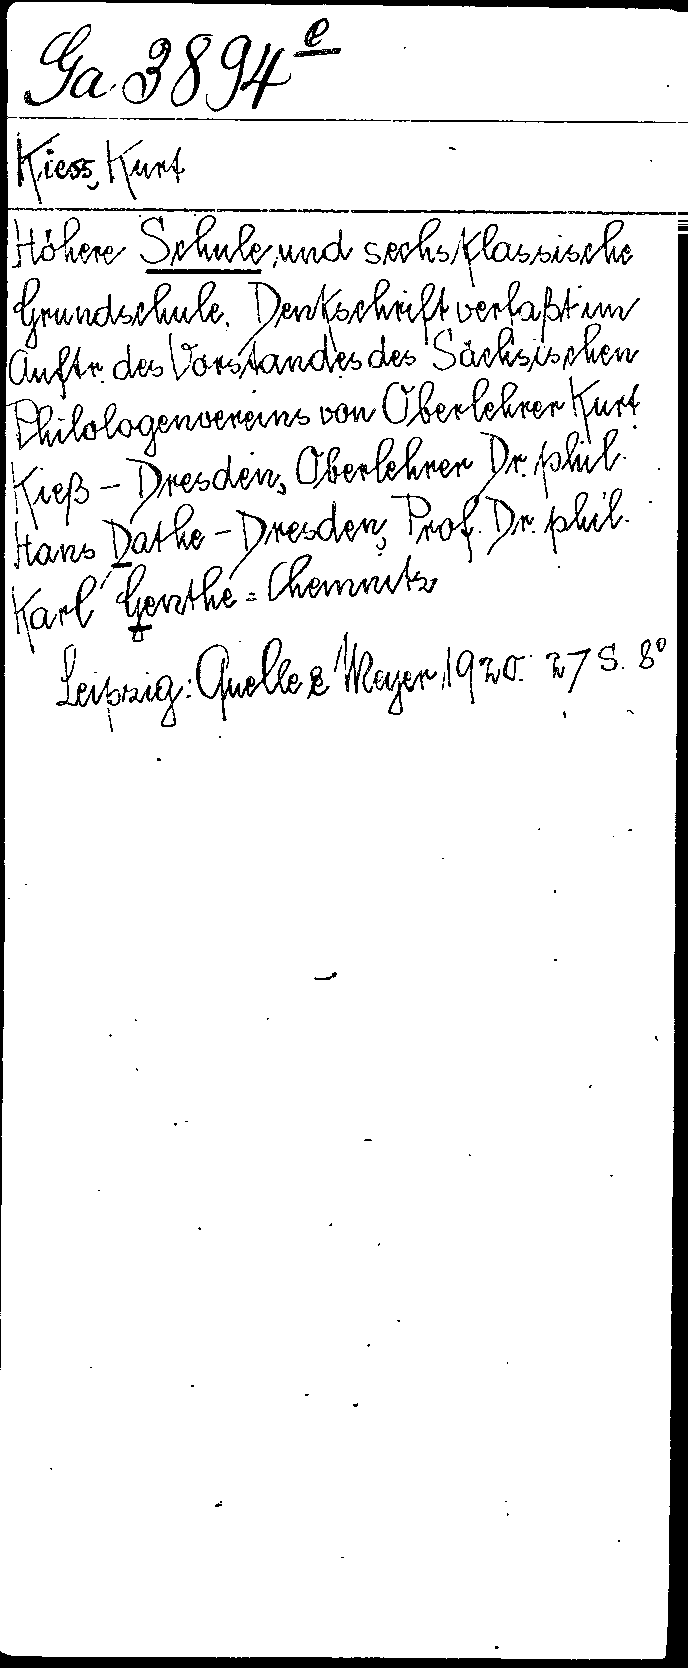 Ga 3894 e
Kiess, Kurt
Höhere Schule und sechsklassische
Grundschule. Denkschrift verfaßt im
Auftr. des Vorstandes des Sächsischen
Philologenvereins von Oberlehrer Kurt
Kieß - Dresden, Oberlehrer Dr. phil.
Hans Dathe - Dresden, Prof. Dr. phil.
Karl Genthe = Chemnitz
Leipzig: Quelle & Meyer 1920. 27 S. 8°